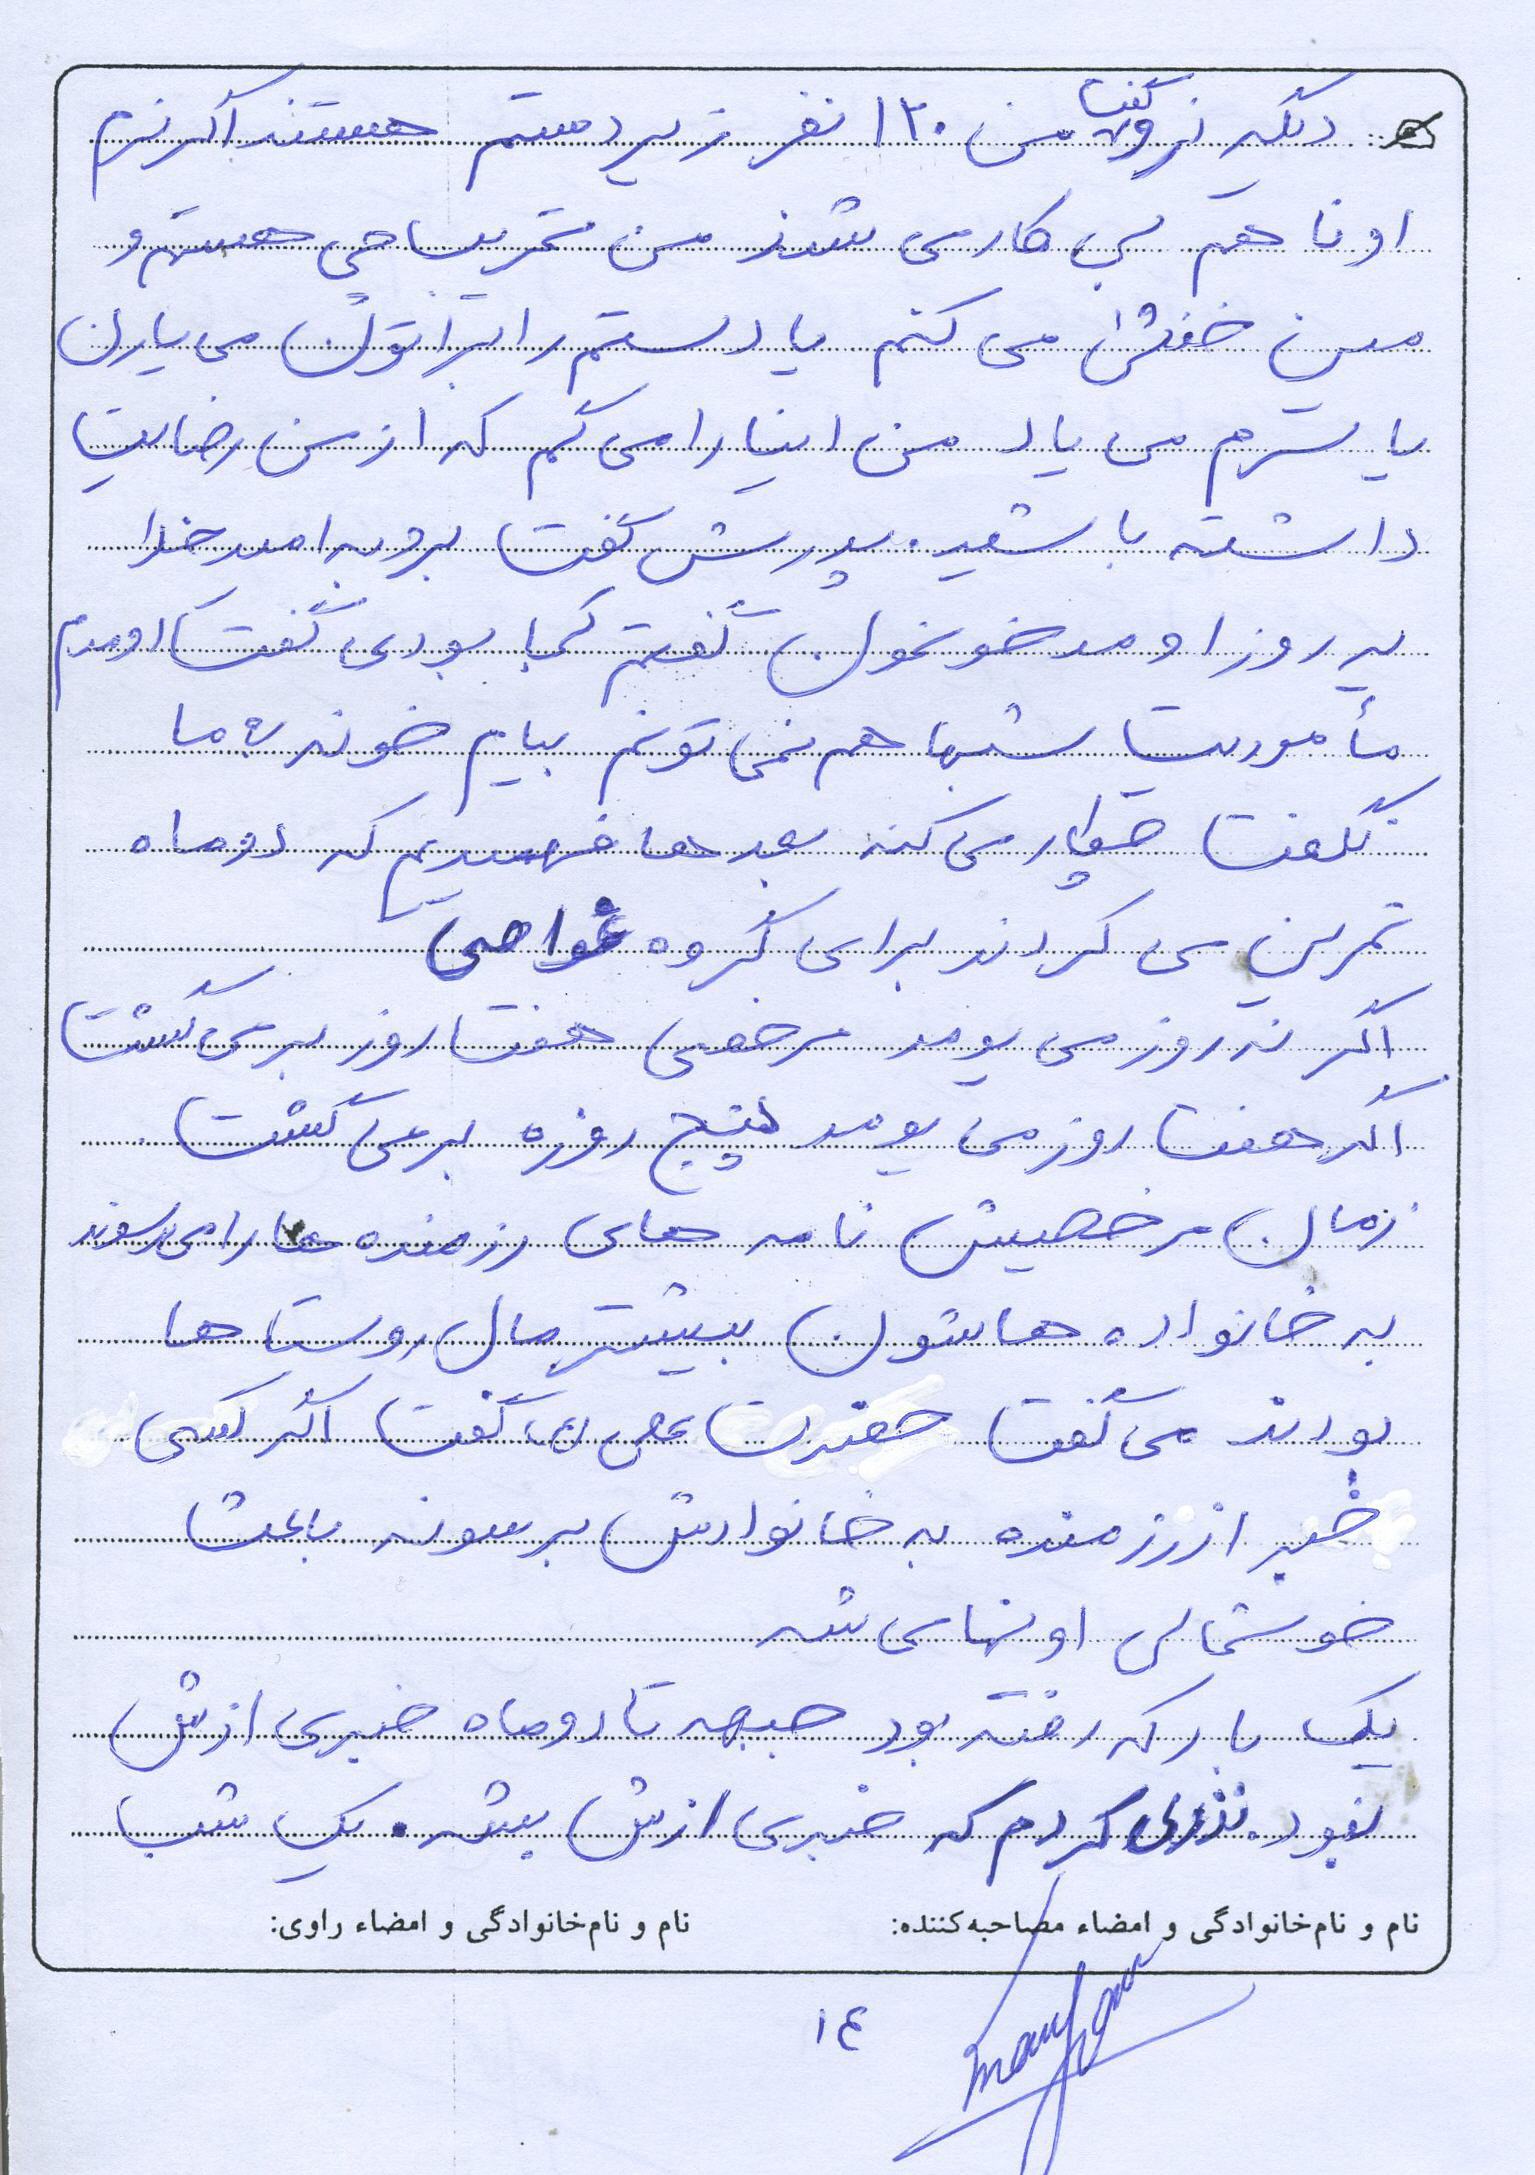 دیگه نرو گفت من ۱۲۰ نفر زیر دستم هستند اگر نرم
اونا هم بی کار می شند من تخریب چی هستم و
مین خنثی می کنم یا دستم را براتون می یارن
یا سرم می یاد من اینا را می گم که از من رضایت
داشته باشید. پدرش گفت برو به امید خدا
یه روز اومد خونمون گفتم کجا بودی گفت اومدم
مأموریت شبها هم نمی تونم بیام خونه به ما
نگفت چیکار می کنه بعدها فهمیدیم که دو ماه
تمرین می کردند برای گروه غواصی
اگر نه روز می یومد مرخصی هفت روز برمی گشت
اگر هفت روز می یومد پنج روزه برمی گشت.
زمان مرخصیش نامه های رزمنده ها را می رسوند
به خانواده هاشون بیشتر مال روستاها
بودند می گفت حضرت علی (ع) گفت اگر کسی
خبر از رزمنده به خانوادش برسونه باعث
خوشحالی اونها می شه
یک بار که رفته بود جبهه تا دو ماه خبری ازش
نبود. نذری کردم که خبری ازش بشه. یک شب
نام و نام‌خانوادگی و امضاء مصاحبه‌کننده:
نام و نام‌خانوادگی و امضاء راوی:
۱٤